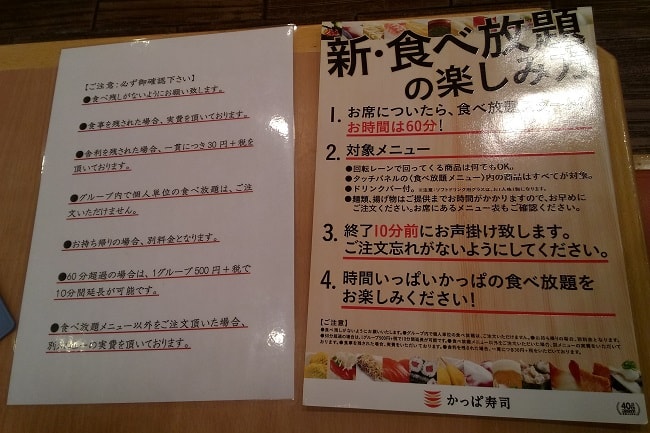 【ご注意:必ず御確認下さい】
●食べ残しがないようにお願い致します。
●食事を残された場合、実費を頂いております。
●舎利を残された場合、一貫につき30円+税を
頂いております。
●グループ内で個人単位の食べ放題は、ご注
文いただけません。
●お持ち帰りの場合、別料金となります。
●60分超過の場合は、1グループ500円+税で
10分間延長が可能です。
●食べ放題メニュー以外をご注文頂いた場合、
別 の実費を頂いております。
新・食べ放題
の楽しみ方
1. お席についたら、食べ放題
お時間は60分!
2. 対象メニュー
●回転レーンで回ってくる商品は何でもOK。
●タッチパネルの《食べ放題メニュー》内の商品はすべてが対象。
●ドリンクバー付。
●麺類、揚げ物はご提供までお時間がかかりますので、お早めに
ご注文ください。お席にあるメニュー表もご確認ください。
3. 終了10分前にお声掛け致します。
ご注文忘れがないようにしてください。
4. 時間いっぱいかっぱの食べ放題を
お楽しみください!
【ご注意】
かっぱ寿司